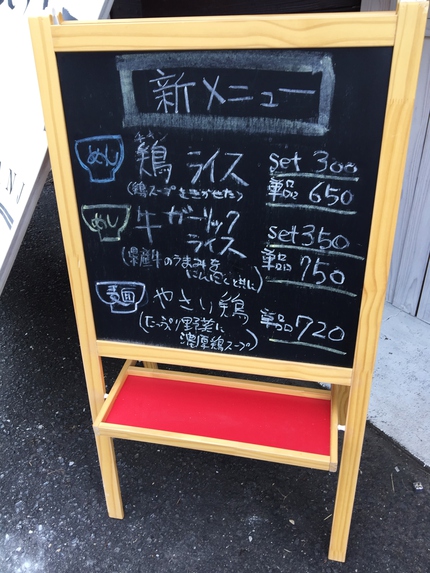 新メニュー
めし
チキン
鶏 ライス
set 300
(鶏スープをきかせた)
単品 650
めし
牛ガーリック
ライス
set 350
(黒毛牛のうまみを
にんにくと共に)
単品 750
麺
やさい鶏
単品 720
(たっぷり野菜に
濃厚鶏スープ)